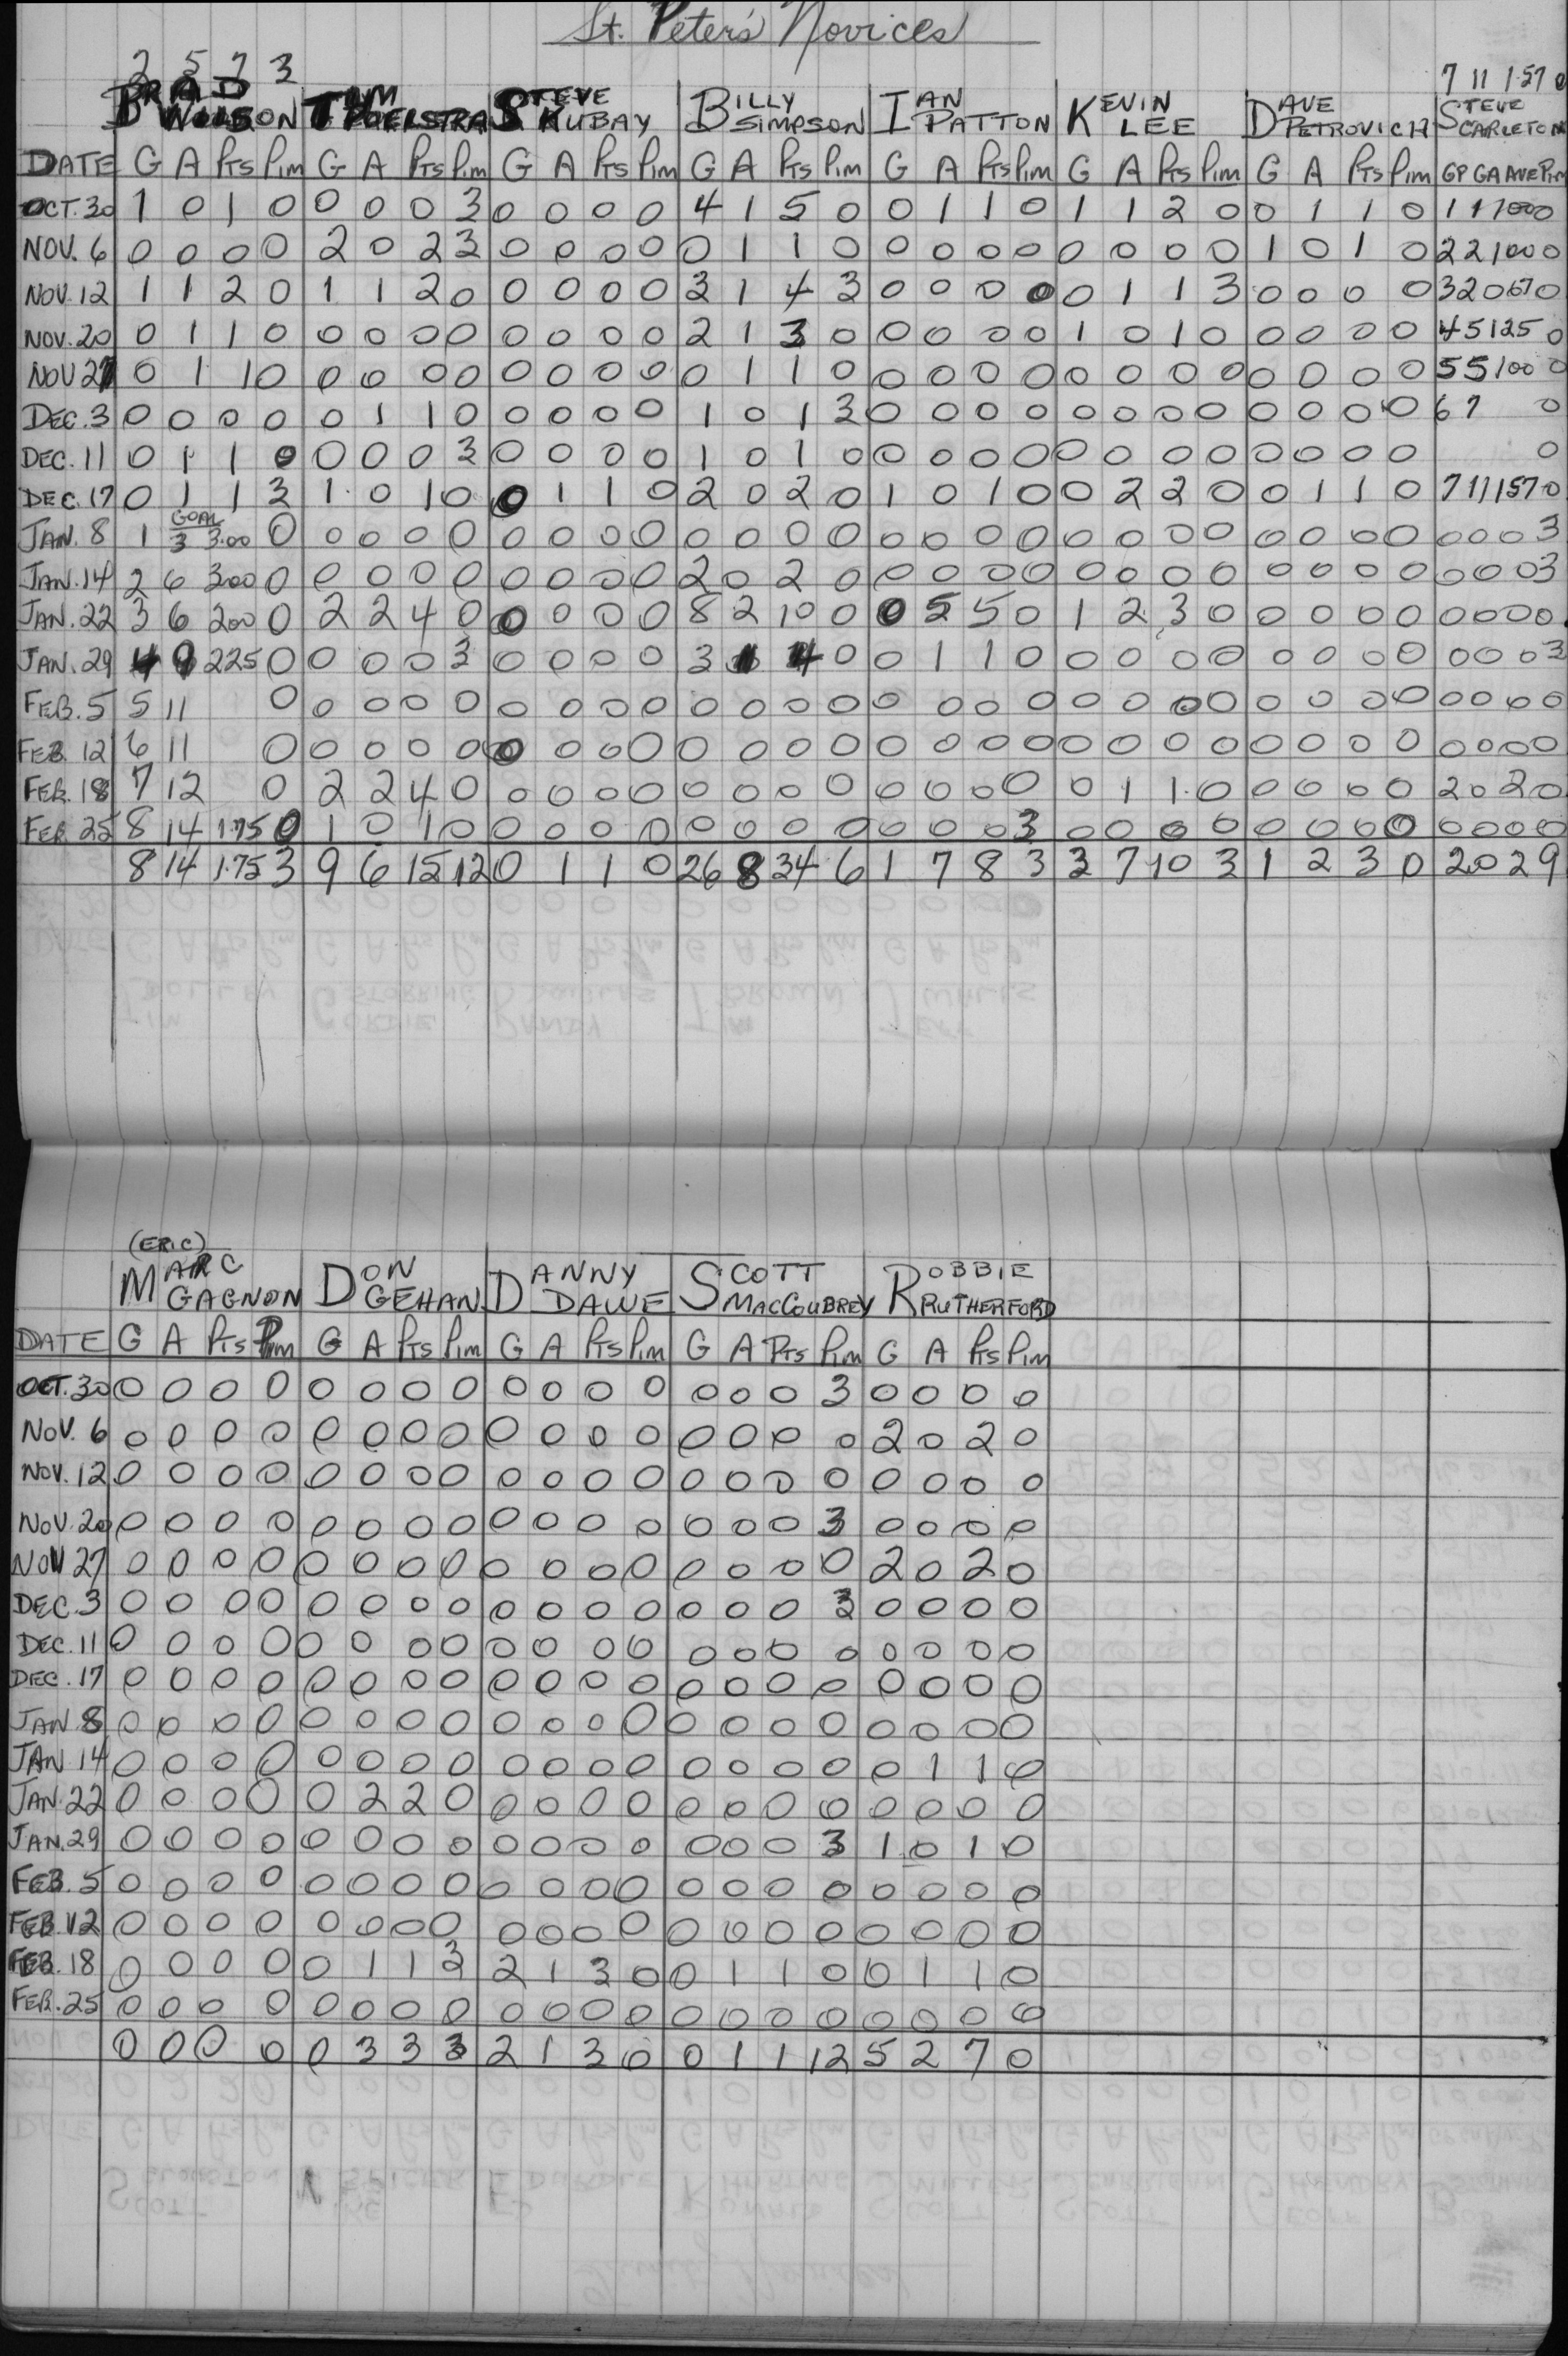 St. Peter's Novices
2 5 7 3 7 11 1.57 0
BRAD WILSON TIM POELSTRA STEVE KUBAY BILLY SIMPSON IAN PATTON KEVIN LEE DAVE PETROVICH STEVE CARLETON
DATE G A Pts Pim G A Pts Pim G A Pts Pim G A Pts Pim G A Pts Pim G A Pts Pim G A Pts Pim GP GA AVE Pim
OCT. 30 1 0 1 0 0 0 0 3 0 0 0 0 4 1 5 0 0 1 1 0 1 1 2 0 0 1 1 0 1 1 1.00 0
NOV. 6 0 0 0 0 2 0 2 3 0 0 0 0 0 1 1 0 0 0 0 0 0 0 0 0 1 0 1 0 2 2 1.00 0
NOV. 12 1 1 2 0 1 1 2 0 0 0 0 0 3 1 4 3 0 0 0 0 0 1 1 3 0 0 0 0 3 2 0.67 0
NOV. 20 0 1 1 0 0 0 0 0 0 0 0 0 2 1 3 0 0 0 0 0 1 0 1 0 0 0 0 0 4 5 1.25 0
NOV 27 0 1 1 0 0 0 0 0 0 0 0 0 0 1 1 0 0 0 0 0 0 0 0 0 0 0 0 0 5 5 1.00 0
DEC. 3 0 0 0 0 0 1 1 0 0 0 0 0 1 0 1 3 0 0 0 0 0 0 0 0 0 0 0 0 6 7 0
DEC. 11 0 1 1 0 0 0 0 3 0 0 0 0 1 0 1 0 0 0 0 0 0 0 0 0 0 0 0 0 0
DEC. 17 0 1 1 3 1 0 1 0 0 1 1 0 2 0 2 0 1 0 1 0 0 2 2 0 0 1 1 0 7 11 1.57 0
GOAL
JAN. 8 1 3 3.00 0 0 0 0 0 0 0 0 0 0 0 0 0 0 0 0 0 0 0 0 0 0 0 0 0 0 0 0 3
JAN. 14 2 6 3.00 0 0 0 0 0 0 0 0 0 2 0 2 0 0 0 0 0 0 0 0 0 0 0 0 0 0 0 0 3
JAN. 22 3 6 2.00 0 2 2 4 0 0 0 0 0 8 2 10 0 0 5 5 0 1 2 3 0 0 0 0 0 0 0 0 0
JAN. 29 4 9 2.25 0 0 0 0 3 0 0 0 0 3 1 4 0 0 1 1 0 0 0 0 0 0 0 0 0 0 0 0 3
FEB. 5 5 11 0 0 0 0 0 0 0 0 0 0 0 0 0 0 0 0 0 0 0 0 0 0 0 0 0 0 0 0 0
FEB. 12 6 11 0 0 0 0 0 0 0 0 0 0 0 0 0 0 0 0 0 0 0 0 0 0 0 0 0 0 0 0 0
FEB. 18 7 12 0 2 2 4 0 0 0 0 0 0 0 0 0 0 0 0 0 0 1 1 0 0 0 0 0 2 0 2 0
FEB. 25 8 14 1.75 0 1 0 1 0 0 0 0 0 0 0 0 0 0 0 0 3 0 0 0 0 0 0 0 0 0 0 0 0
8 14 1.75 3 9 6 15 12 0 1 1 0 26 8 34 6 1 7 8 3 3 7 10 3 1 2 3 0 2 0 2 9
(ERIC)
MARC GAGNON DON GEHAN DANNY DAWE SCOTT MACCOUBREY ROBBIE RUTHERFORD
DATE G A Pts Pim G A Pts Pim G A Pts Pim G A Pts Pim G A Pts Pim
OCT. 30 0 0 0 0 0 0 0 0 0 0 0 0 0 0 0 3 0 0 0 0
NOV. 6 0 0 0 0 0 0 0 0 0 0 0 0 0 0 0 0 2 0 2 0
NOV. 12 0 0 0 0 0 0 0 0 0 0 0 0 0 0 0 0 0 0 0 0
NOV. 20 0 0 0 0 0 0 0 0 0 0 0 0 0 0 0 3 0 0 0 0
NOV 27 0 0 0 0 0 0 0 0 0 0 0 0 0 0 0 0 2 0 2 0
DEC. 3 0 0 0 0 0 0 0 0 0 0 0 0 0 0 0 3 0 0 0 0
DEC. 11 0 0 0 0 0 0 0 0 0 0 0 0 0 0 0 0 0 0 0 0
DEC. 17 0 0 0 0 0 0 0 0 0 0 0 0 0 0 0 0 0 0 0 0
JAN 8 0 0 0 0 0 0 0 0 0 0 0 0 0 0 0 0 0 0 0 0
JAN 14 0 0 0 0 0 0 0 0 0 0 0 0 0 0 0 0 0 1 1 0
JAN. 22 0 0 0 0 0 2 2 0 0 0 0 0 0 0 0 0 0 0 0 0
JAN. 29 0 0 0 0 0 0 0 0 0 0 0 0 0 0 0 3 1 0 1 0
FEB. 5 0 0 0 0 0 0 0 0 0 0 0 0 0 0 0 0 0 0 0 0
FEB. 12 0 0 0 0 0 0 0 0 0 0 0 0 0 0 0 0 0 0 0 0
FEB. 18 0 0 0 0 0 1 1 3 2 1 3 0 0 1 1 0 0 1 1 0
FEB. 25 0 0 0 0 0 0 0 0 0 0 0 0 0 0 0 0 0 0 0 0
0 0 0 0 0 3 3 3 2 1 3 0 0 1 1 12 5 2 7 0